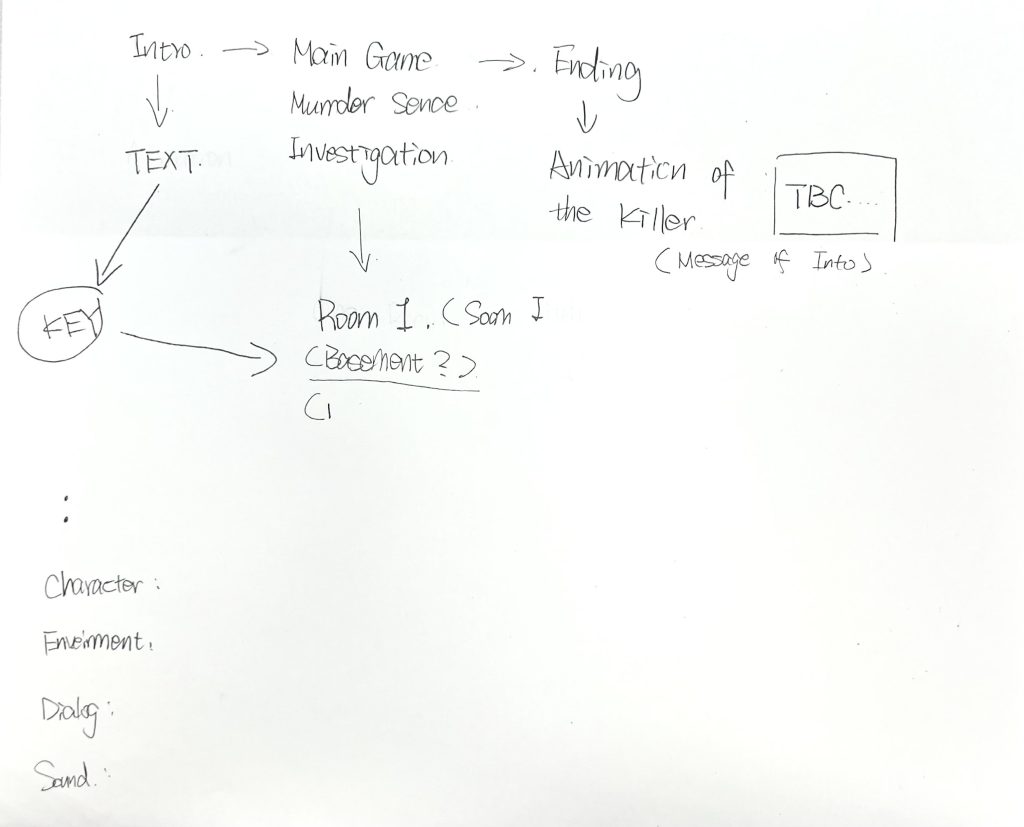 Intro. → Main Game → . Ending
Murrder Sence .
Investigation
TEXT.
Animation of
the Killer.
TBC.....
(Message of Into)
KEY
Room I. (Soam I
(Basement ?)
(
:
Character :
Enveirnment.
Dialog :
Sound. :